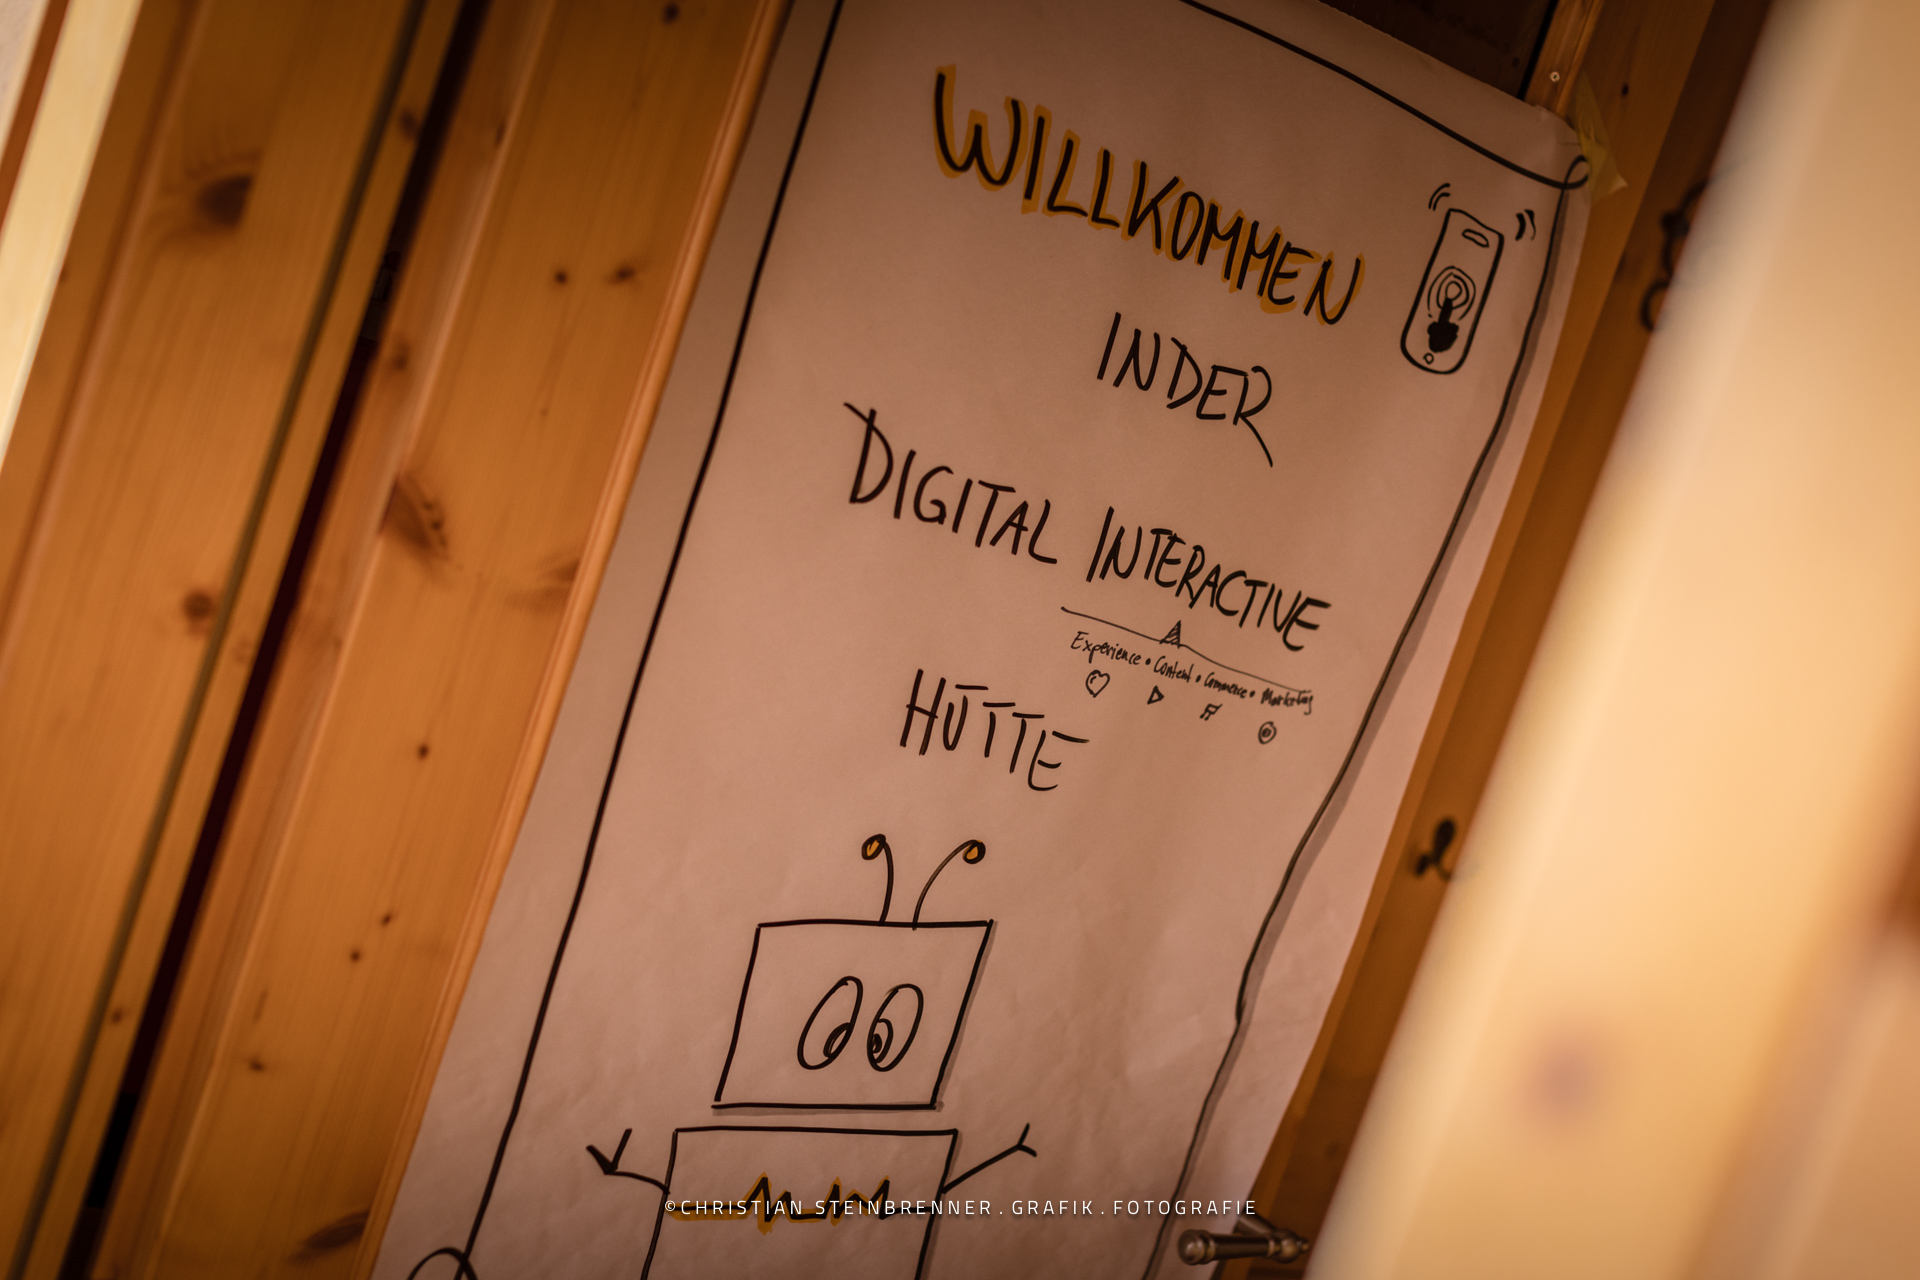 WILLKOMMEN
IN DER
DIGITAL INTERACTIVE
Experience • Content • Commerce • Marketing
HÜTTE
©CHRISTIAN STEINBRENNER.GRAFIK.FOTOGRAFIE